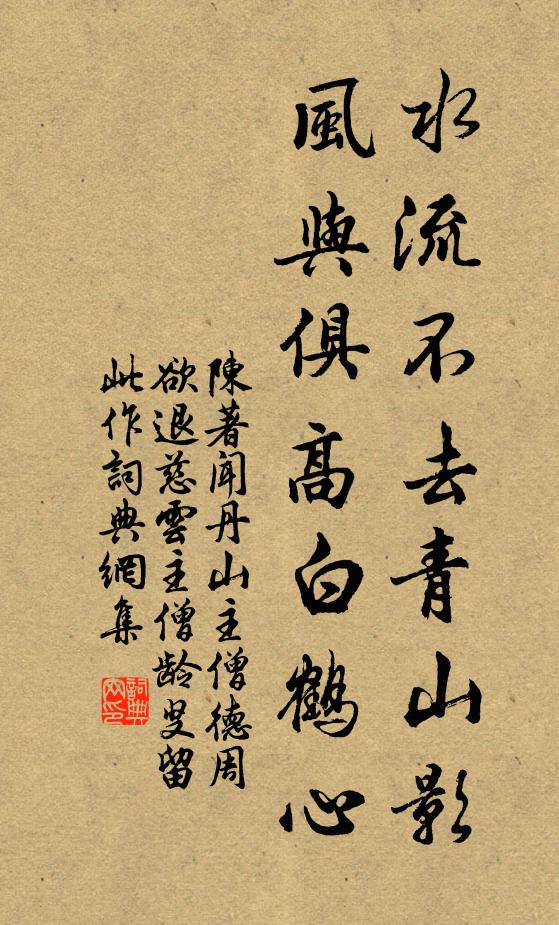 水流不去青山影
風與俱高白鶴心
陳著聞丹山主僧德周
欲退慈雲主僧龄叟留
此作詞典網集
詞典網印